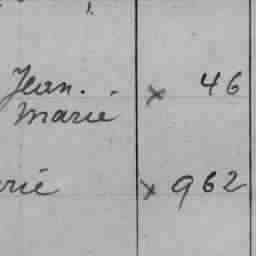 Jean. . x 46
Marie
rie x 962